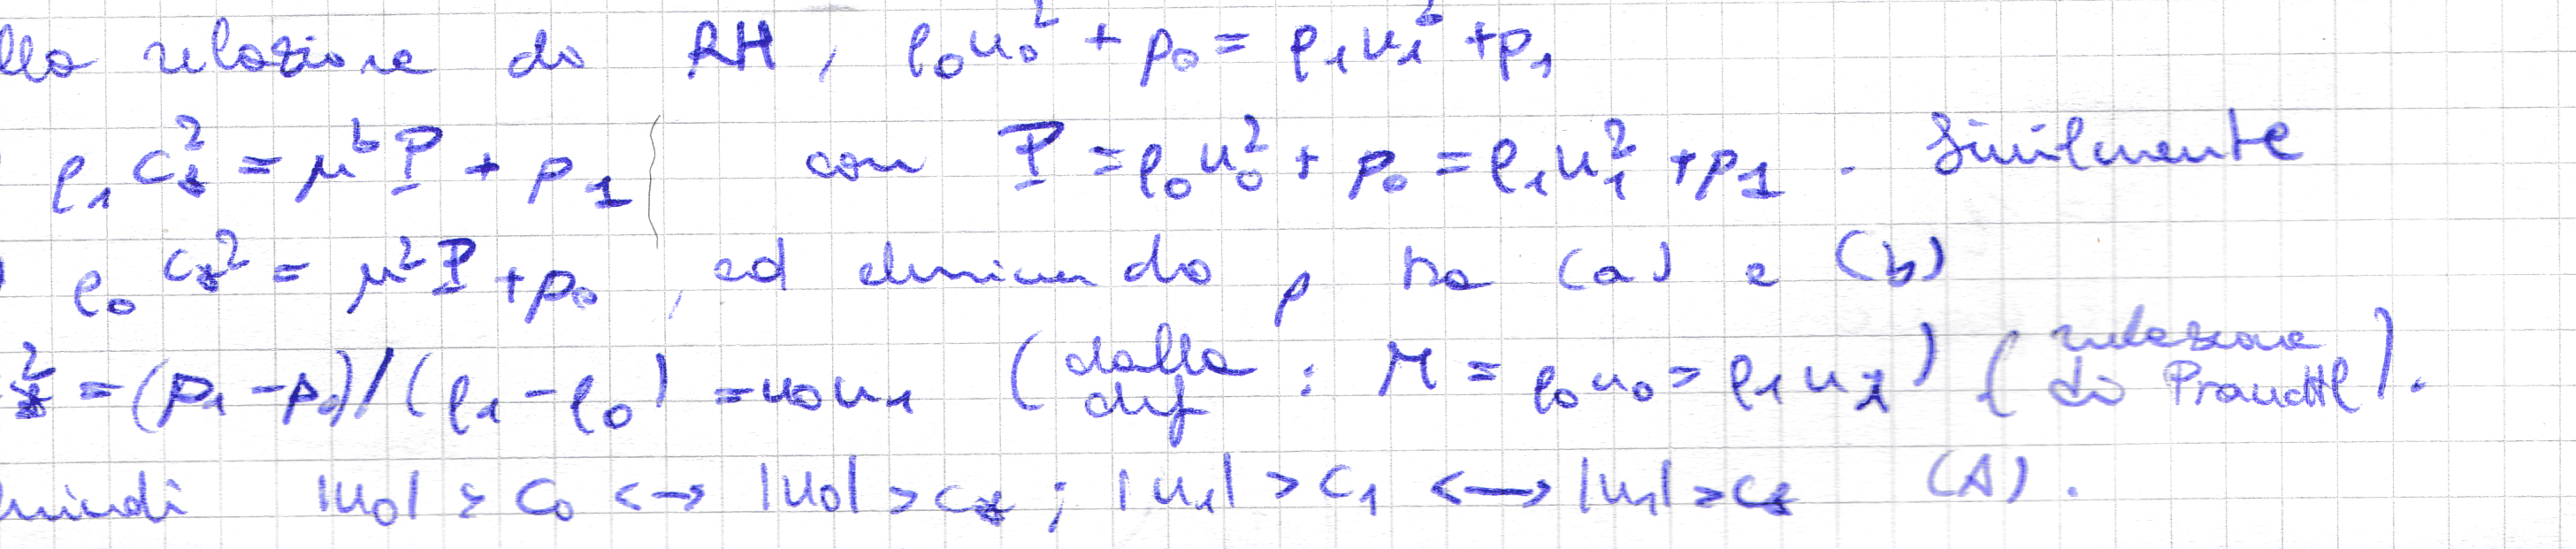 lla relazione di RH, ρ₀u₀² + p₀ = ρ₁u₁² + p₁
ρ₁c²⁎ = μ²P + p₁ con P = ρ₀u₀² + p₀ = ρ₁u₁² + p₁. Similmente
ρ₀c⁎² = μ²P + p₀, ed eliminando p tra (a) e (b)
²⁎ = (p₁ - p₀)/(ρ₁ - ρ₀) = u₀u₁ (dalla def: M = ρ₀u₀ = ρ₁u₁) (relazione di Prandtl).
uindi |u₀| > c₀ <-> |u₀| > c⁎; |u₁| > c₁ <-> |u₁| > c⁎ (A).